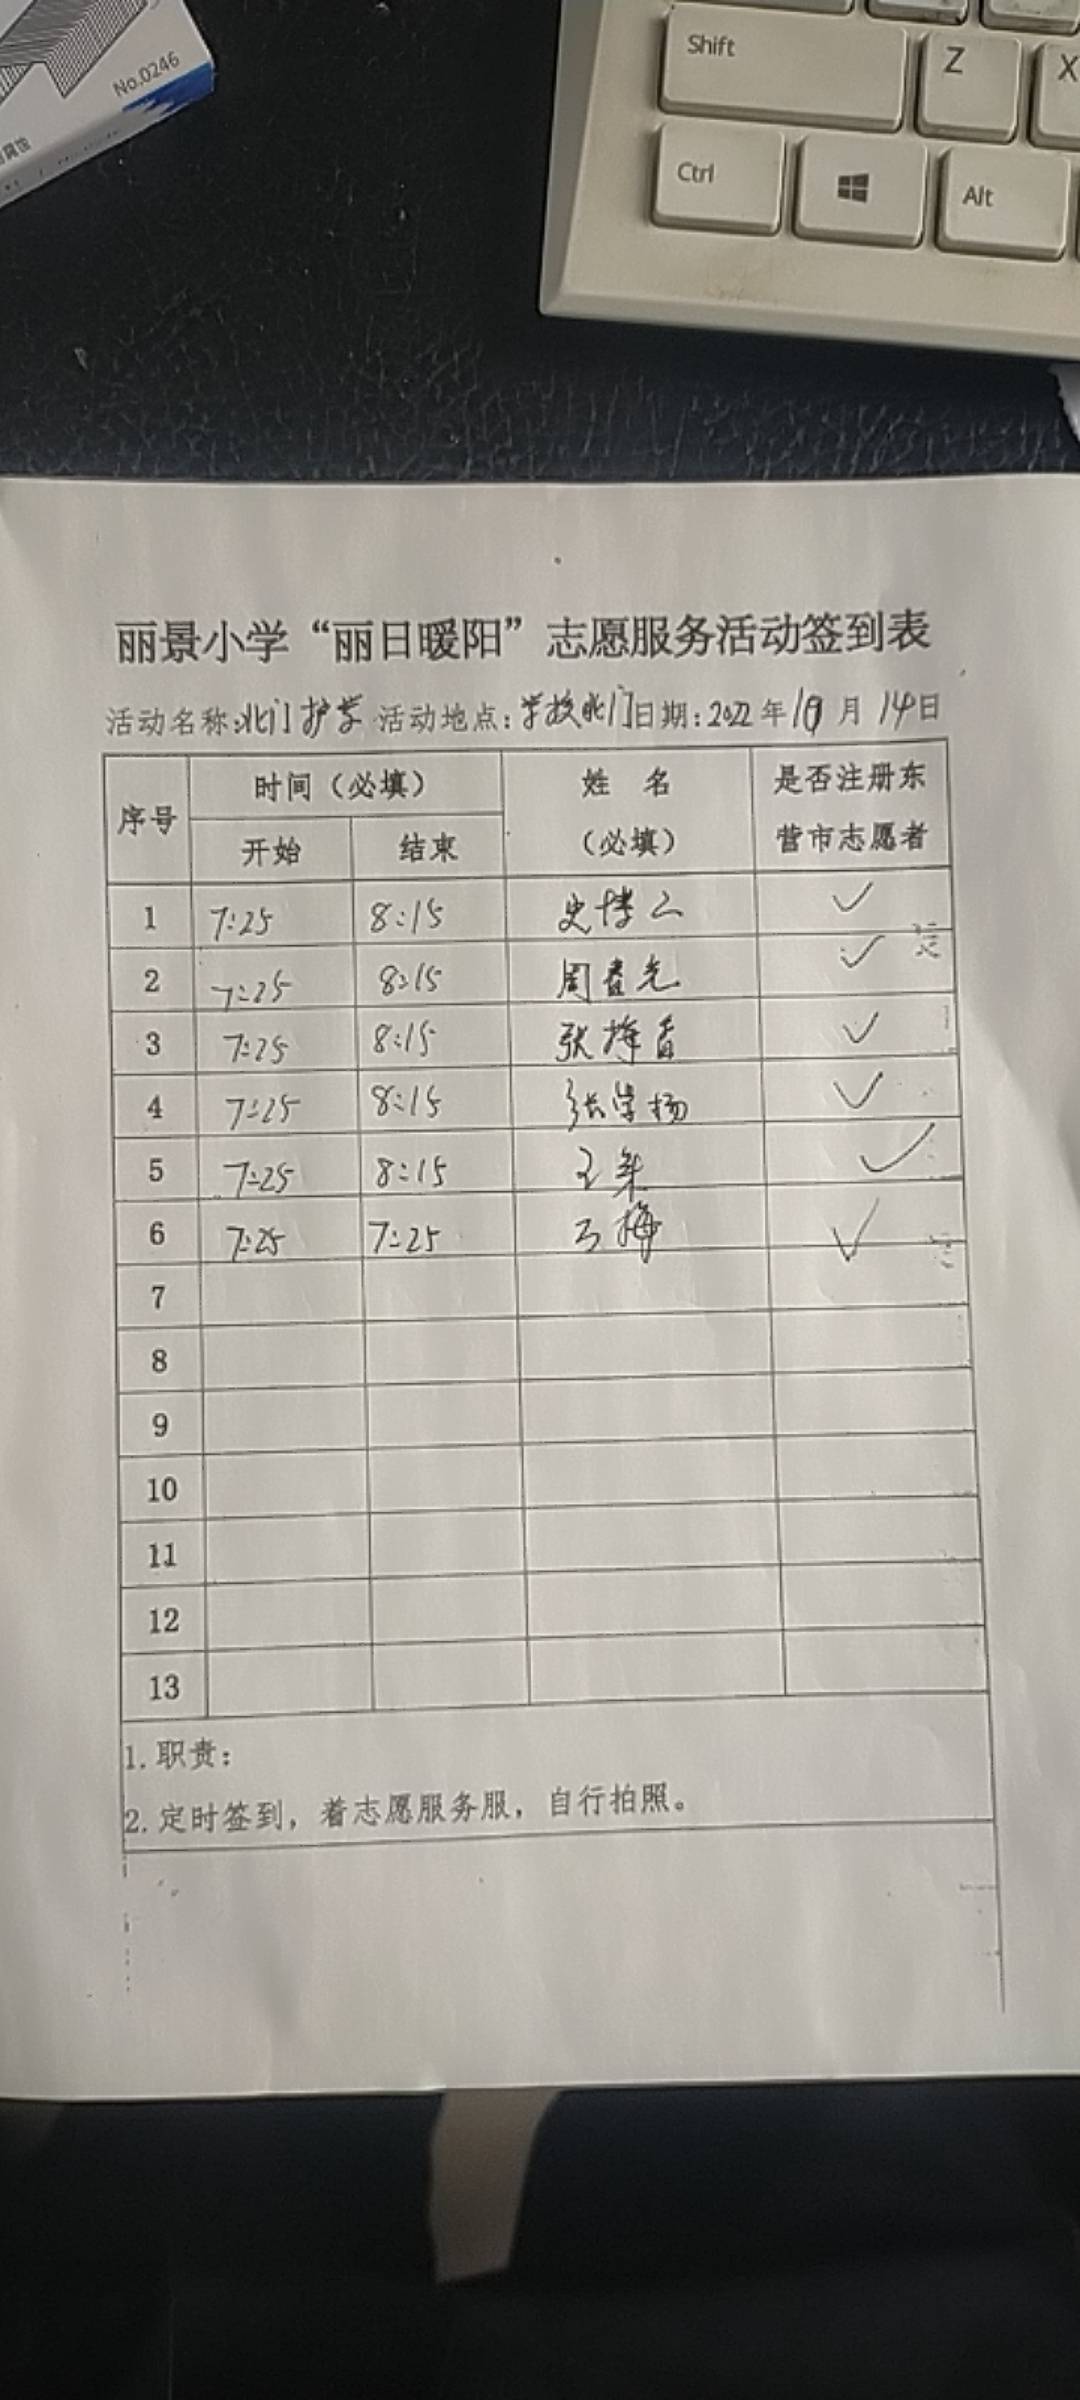 No.0246
Shift Z X
Ctrl Alt
丽景小学“丽日暖阳”志愿服务活动签到表
活动名称:北门护学 活动地点:学校北门 日期:2022年10月14日
序号 时间（必填） 姓 名 是否注册东
开始 结束 （必填） 营市志愿者
1 7:25 8:15 史 ✓
2 7:25 8:15 周春光 ✓
3 7:25 8:15 张 ✓
4 7:25 8:15 张学杨 ✓
5 7:25 8:15 王 ✓
6 7:25 7:25 梅 ✓
7
8
9
10
11
12
13
1.职责:
2.定时签到，着志愿服务服，自行拍照。